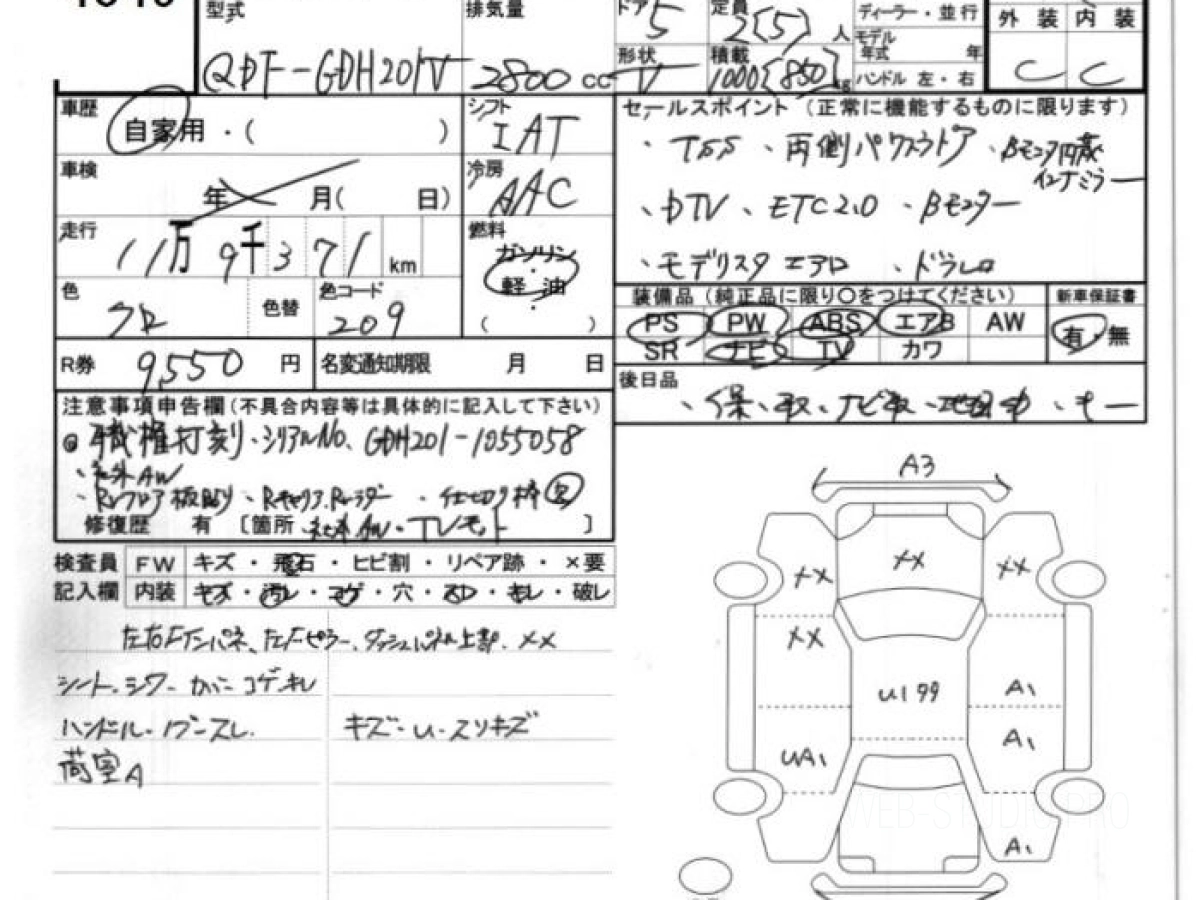 型式 排気量 ドア 5 定員 2(5)人 ディーラー・並行 外装 内装
モデル年式 年
QDF-GDH201V 2800cc 形状 V 積載 1000(850)kg ハンドル 左・右 C C
車歴 自家用・( )
シフト IAT
車検 年 月( 日)
冷房 AAC
走行 11万9千371km
燃料 ガソリン・軽油 ( )
色 クロ 色替 色コード 209
R券 9,550円 名変通知期限 月 日
セールスポイント(正常に機能するものに限ります)
・TSS、両側パワースライドドア、Bモニタ内蔵
インナーミラー
、DTV、ETC2.0、Bモニター
、モデリスタエアロ、ドラレコ
装備品(純正品に限り○をつけてください) 新車保証書
PS PW ABS エアB AW 有・無
SR ナビ TV カワ
後日品
、保、取、ナビ取、
注意事項申告欄(不具合内容等は具体的に記入して下さい)
職権打刻、シリアルNo. GDH201-1055058
・社外AW
・Rフロア板貼り、Rキャリア、Rラダー・
修復歴 有 [箇所 社外AW・TVキット ]
検査員 FW キズ・飛石・ヒビ割・リペア跡・×要
記入欄 内装 キズ・汚レ・コゲ・穴・スレ・キレ・破レ
左右Fインパネ、左Fピラー、ダッシュパネル上部、××
シート、シワ、カバー コゲ、キレ
ハンドル・ノブ-スレ. キズ・U・スリキズ
荷室A
A3
××
×× ××
××
U199 A1
A1
UA1
A1
WEB-STUDIO.PRO